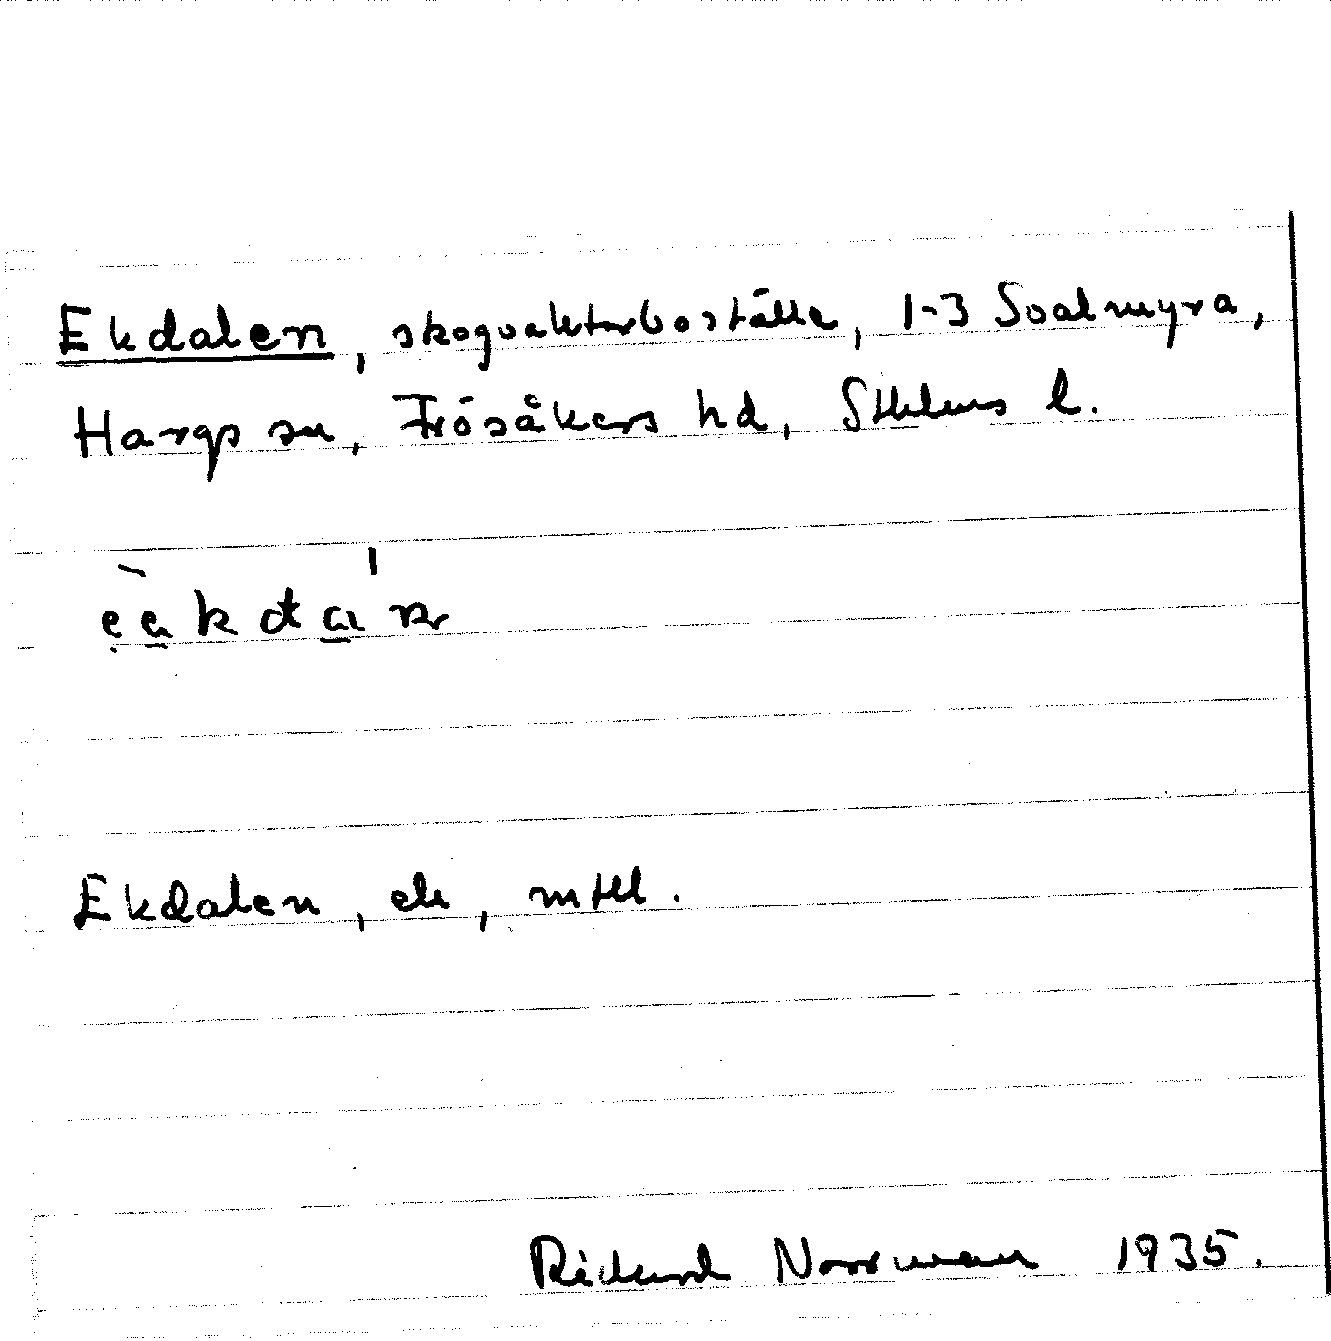 Ekdalen, skogvaktarboställe, 1-3 Svalmyra,
Hargs sn, Frösåkers hd, Sthlms l.
Ekdalen, ek, mtll.
Richard Norrman 1935.